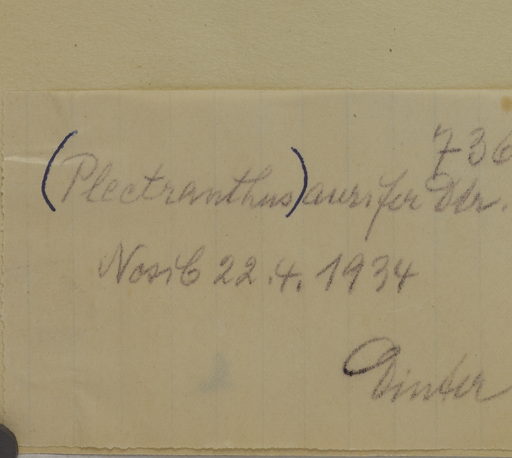 736
(Plectranthus) aurifer Dtr.
Nosib 22.4.1934
Dinter